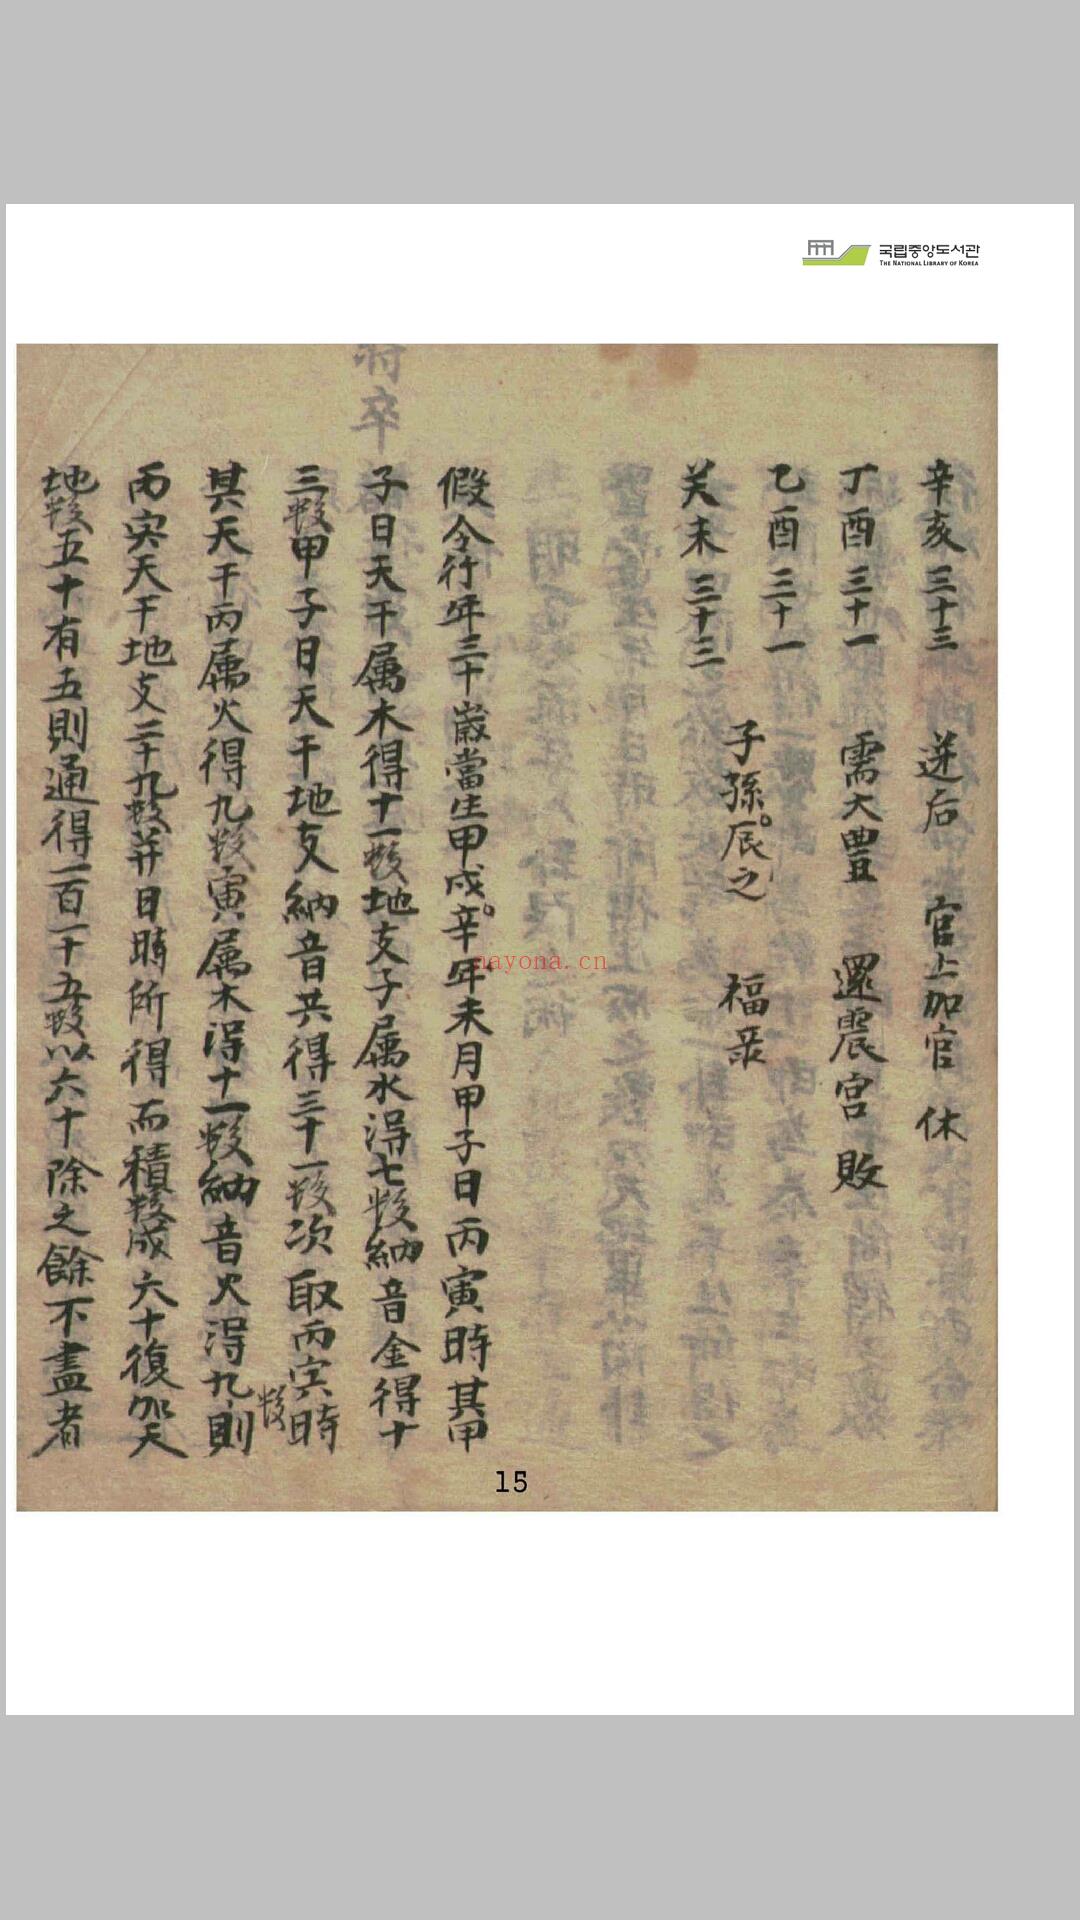 국립중앙도서관
THE NATIONAL LIBRARY OF KOREA
辛亥 三十三 迸后 官上加官 休
丁酉 三十一 需大豊 還震宮 敗
乙酉 三十一
子孫。辰之 福
未 三十三
假令行年三十歲當生甲戌。辛年未月甲子日丙寅時其甲
子日天干属木得十一数地支子属水得七数納音金得十
三数甲子日天干地支納音共得三十一数次取丙寅時
其天干丙属火得九数寅属木得十一数納音火得九数則
丙寅天干地支二十九数并日時所得而積数成六十復加天
地数五十有五則通得一百一十五数以六十除之餘不盡者
aayona.cn
15